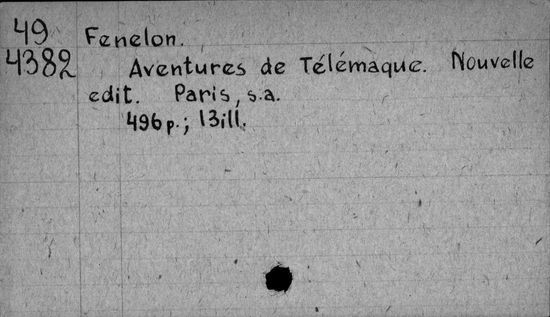 49 Fenelon.
4382 Aventures de Télémaque. Nouvelle
edit. Paris, s.a.
496p.; 13ill.